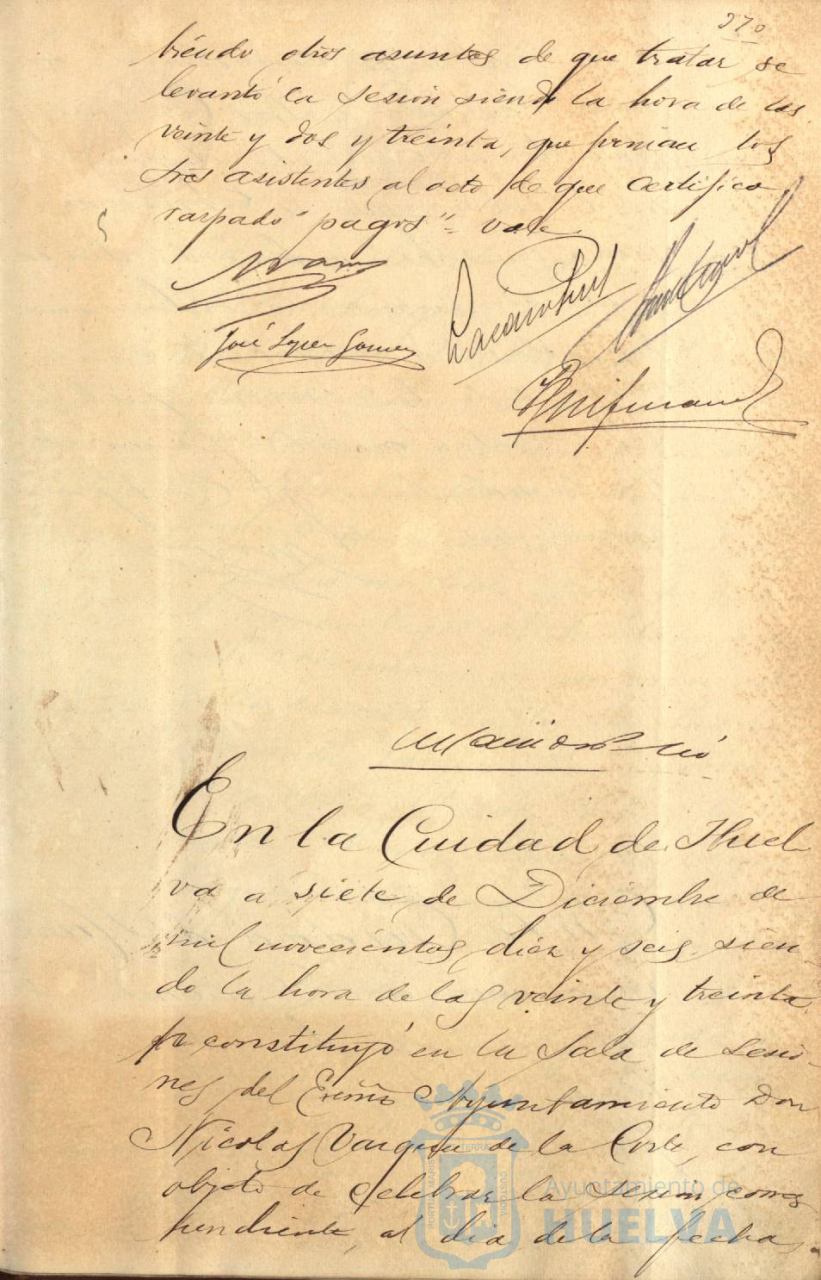 270
biendo otros asuntos de que tratar se
levantó la sesión siendo la hora de las
veinte y dos y treinta, que firman los
Sres asistentes al acto de que certifico
raspado "pagos" = vale
José Lopez Gomez
En la Cuidad de Huel
va a siete de Diciembre de
mil novecientos diez y seis, sien-
do la hora de las veinte y treinta
se constituyó en la Sala de Sesio-
nes del Exmo Ayuntamiento Don
Nicolas Vazquez de la Corte, con
objeto de celebrar la sesion corres
pondiente, al dia de la fecha.
Ayuntamiento de
HUELVA